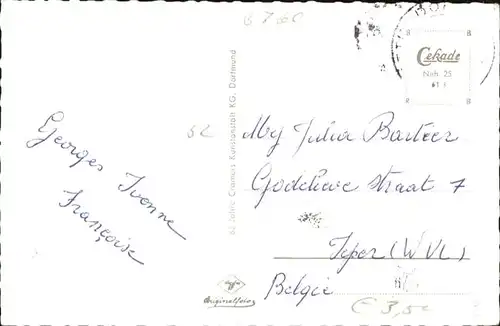 B 7 60
Cekade
Neh. 25
52
Georges Ivonne
Françoise
60 Jahre Cramers Kunstanstalt KG, Dortmund
Mej Julia
Godelieve straat 7
Ieper (W VL)
België
Originalfoto
€ 3,50